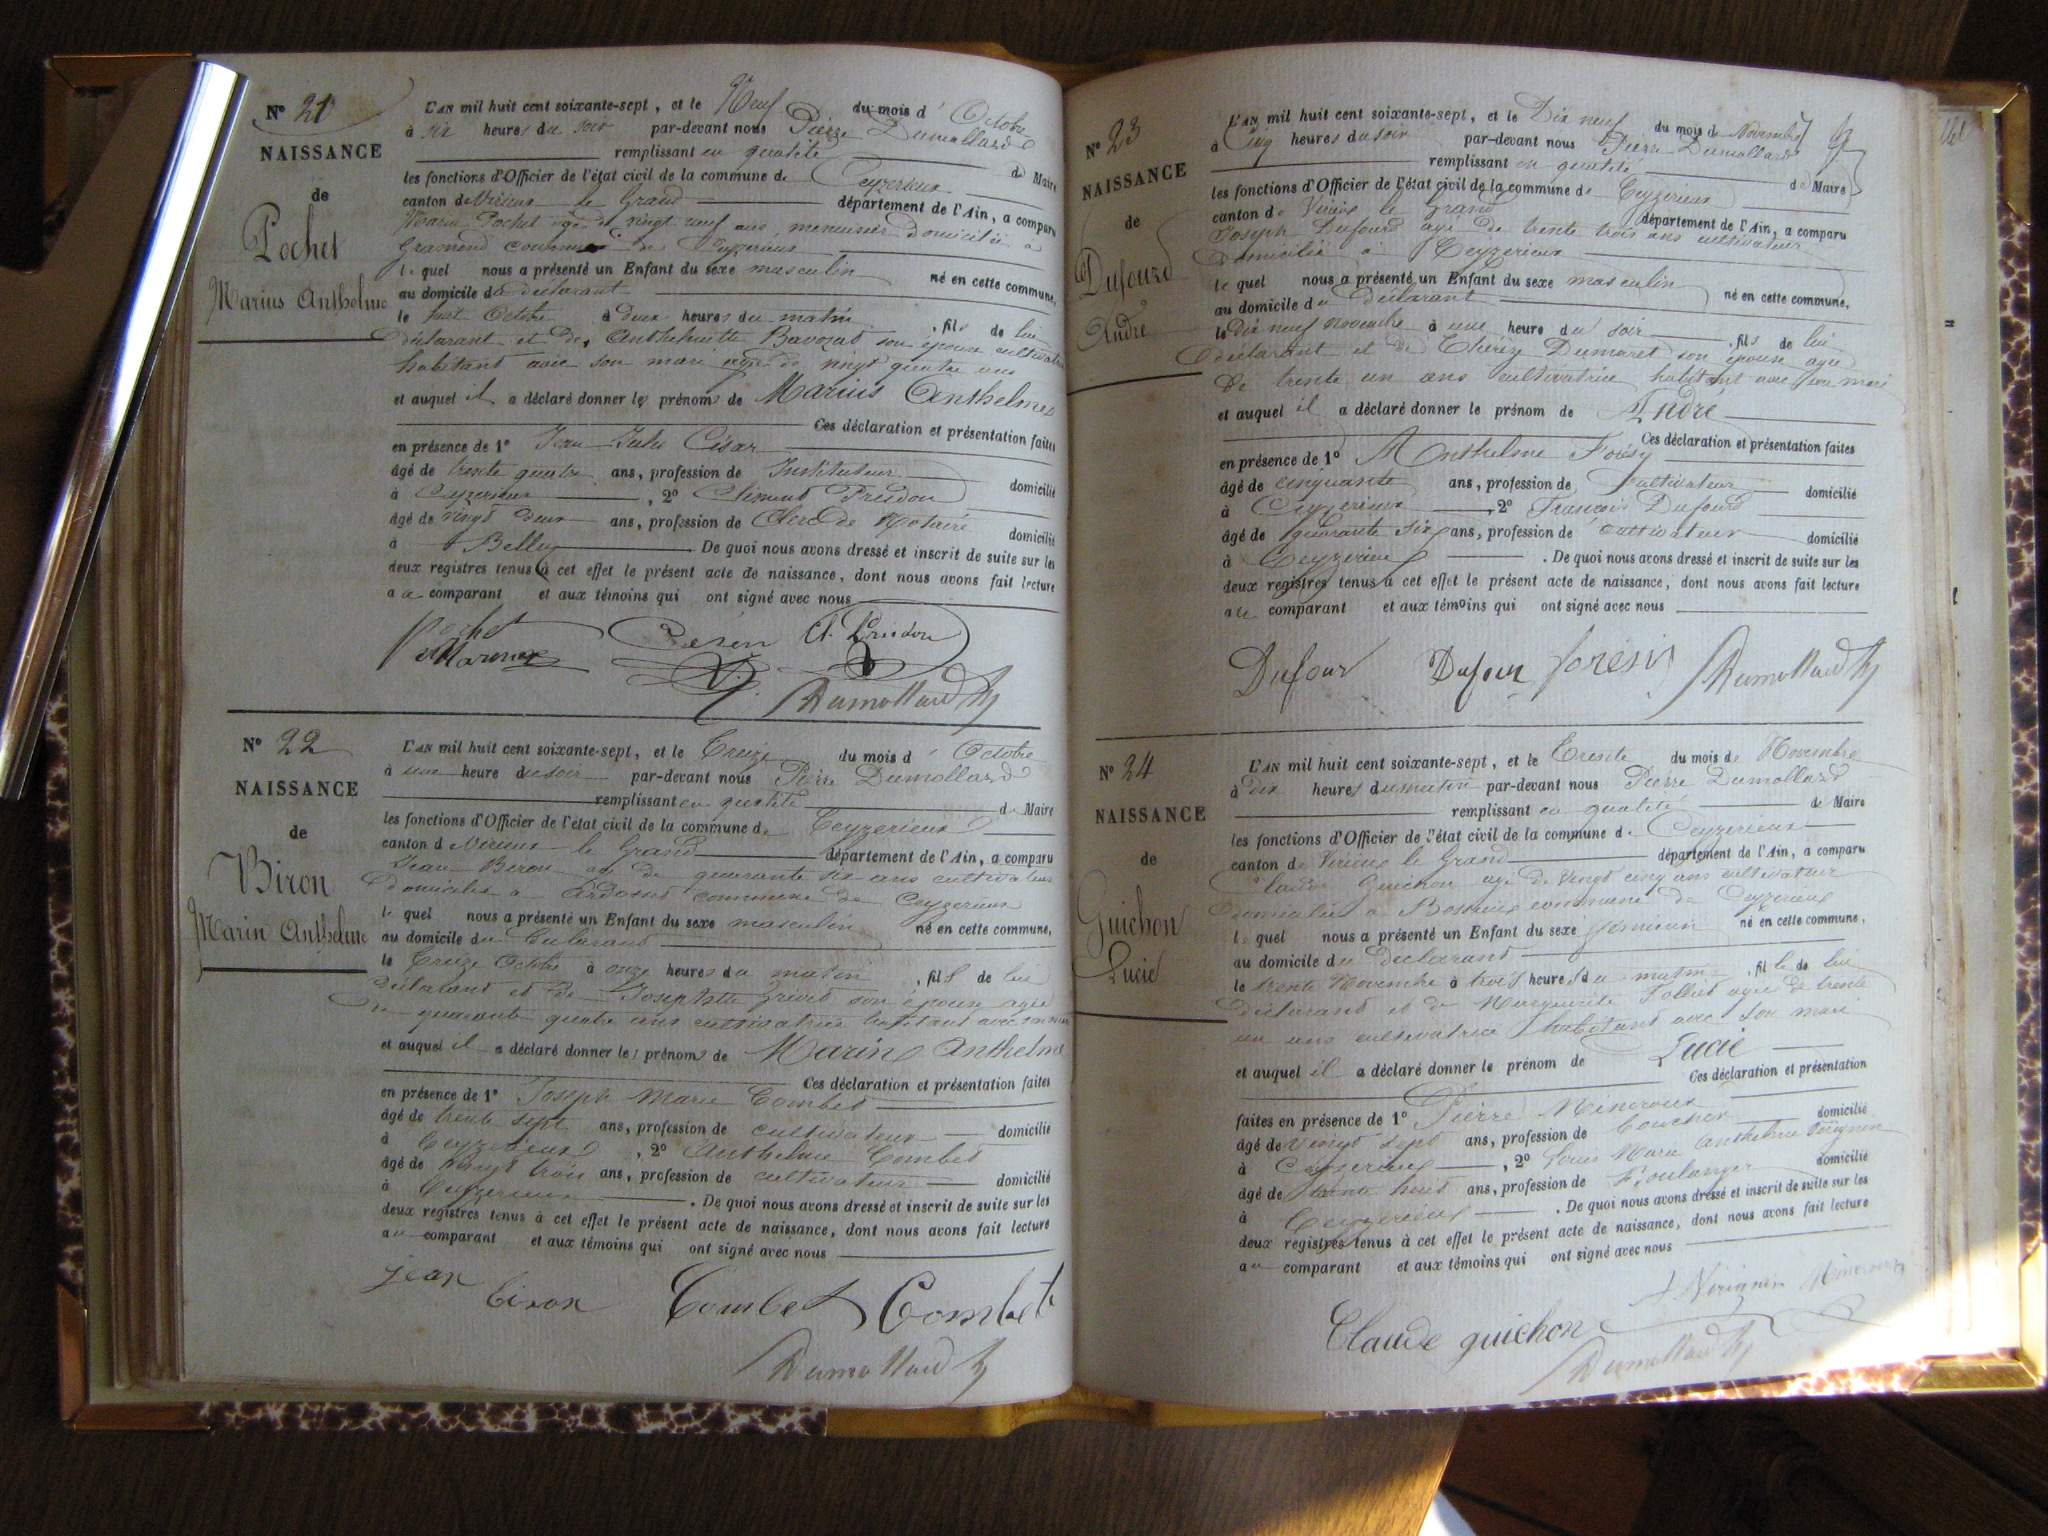 N° 21
NAISSANCE
de
Pochet
Marius Anthelme
L'AN mil huit cent soixante-sept, et le Neuf du mois d' Octobre
à six heures du soir par-devant nous Pierre Dumollard
remplissant en qualité de Maire
les fonctions d'Officier de l'état civil de la commune de Ceyzerieux
canton de Virieux le Grand département de l'Ain, a comparu
Marin Pochet age de vingt neuf ans, menuisier domicilié à
commune de Ceyzerieux
lequel nous a présenté un Enfant du sexe masculin né en cette commune,
au domicile du declarant
le huit Octobre à deux heures du matin, fils de lui
déclarant et de Anthelmette son épouse cultivatrice
habitant avec son mari agée de vingt quatre ans
et auquel il a déclaré donner les prénoms de Marius Anthelme
Ces déclaration et présentation faites
en présence de 1° Jean César
âgé de trente quatre ans, profession de Instituteur domicilié
à Ceyzerieux, 2°
âgé de vingt deux ans, profession de Clerc de Notaire domicilié
à Belley De quoi nous avons dressé et inscrit de suite sur les
deux registres tenus à cet effet le présent acte de naissance, dont nous avons fait lecture
au comparant et aux témoins qui ont signé avec nous
Pochet
Dumollard
N° 22
NAISSANCE
de
Biron
Marin Anthelme
L'AN mil huit cent soixante-sept, et le Treize du mois d' Octobre
à une heure du soir par-devant nous Pierre Dumollard
remplissant en qualité de Maire
les fonctions d'Officier de l'état civil de la commune de Ceyzerieux
canton de Virieux le Grand département de l'Ain, a comparu
Jean Biron age de quarante six ans cultivateur
domicilié a commune de Ceyzerieux
lequel nous a présenté un Enfant du sexe masculin né en cette commune,
au domicile du Declarant
le Treize Octobre à onze heures du matin, fils de lui
déclarant et de Josephette son épouse agée
de quarante quatre ans cultivatrice habitant avec son mari
et auquel il a déclaré donner les prénoms de Marin Anthelme
Ces déclaration et présentation faites
en présence de 1° Joseph Marie Combet
âgé de trente sept ans, profession de cultivateur domicilié
à Ceyzerieux, 2° Anthelme Combet
âgé de vingt trois ans, profession de cultivateur domicilié
à Ceyzerieux. De quoi nous avons dressé et inscrit de suite sur les
deux registres tenus à cet effet le présent acte de naissance, dont nous avons fait lecture
au comparant et aux témoins qui ont signé avec nous
jean biron Combet Combet
Dumollard
N° 23
NAISSANCE
de
Dufourd
André
L'AN mil huit cent soixante-sept, et le Dix neuf du mois de Novembre
à Cinq heures du soir par-devant nous Pierre Dumollard
remplissant en qualité de Maire
les fonctions d'Officier de l'état civil de la commune de Ceyzerieux
canton de Virieux le Grand département de l'Ain, a comparu
Joseph Dufourd age de trente trois ans cultivateur
domicilié à Ceyzerieux
lequel nous a présenté un Enfant du sexe masculin né en cette commune,
au domicile du déclarant
le Dix neuf novembre à une heure du soir, fils de lui
déclarant et de Thérèze Dumaret son épouse agée
de trente un ans cultivatrice habitant avec son mari
et auquel il a déclaré donner le prénom de André
Ces déclaration et présentation faites
en présence de 1° Anthelme
âgé de cinquante ans, profession de Cultivateur domicilié
à Ceyzerieux, 2° François Dufourd
âgé de quarante six ans, profession de cultivateur domicilié
à Ceyzerieux. De quoi nous avons dressé et inscrit de suite sur les
deux registres tenus à cet effet le présent acte de naissance, dont nous avons fait lecture
au comparant et aux témoins qui ont signé avec nous
Dufour Dufour Dumollard
N° 24
NAISSANCE
de
Guichon
Lucie
L'AN mil huit cent soixante-sept, et le Trente du mois de Novembre
à dix heures du matin par-devant nous Pierre Dumollard
remplissant en qualité de Maire
les fonctions d'Officier de l'état civil de la commune de Ceyzerieux
canton de Virieux le Grand département de l'Ain, a comparu
Claude Guichon age de vingt cinq ans cultivateur
domicilié a commune de Ceyzerieux
lequel nous a présenté un Enfant du sexe féminin né en cette commune,
au domicile du Declarant
le trente Novembre à trois heures du matin, fille de lui
déclarant et de Marguerite Folliet agée de trente
un ans cultivatrice habitant avec son mari
et auquel il a déclaré donner le prénom de Lucie
Ces déclaration et présentation
faites en présence de 1° Pierre
âgé de vingt sept ans, profession de domicilié
à Ceyzerieux, 2° Louis Marie Anthelme
âgé de trente huit ans, profession de Boulanger domicilié
à Ceyzerieux. De quoi nous avons dressé et inscrit de suite sur les
deux registres tenus à cet effet le présent acte de naissance, dont nous avons fait lecture
au comparant et aux témoins qui ont signé avec nous
Claude guichon
Dumollard